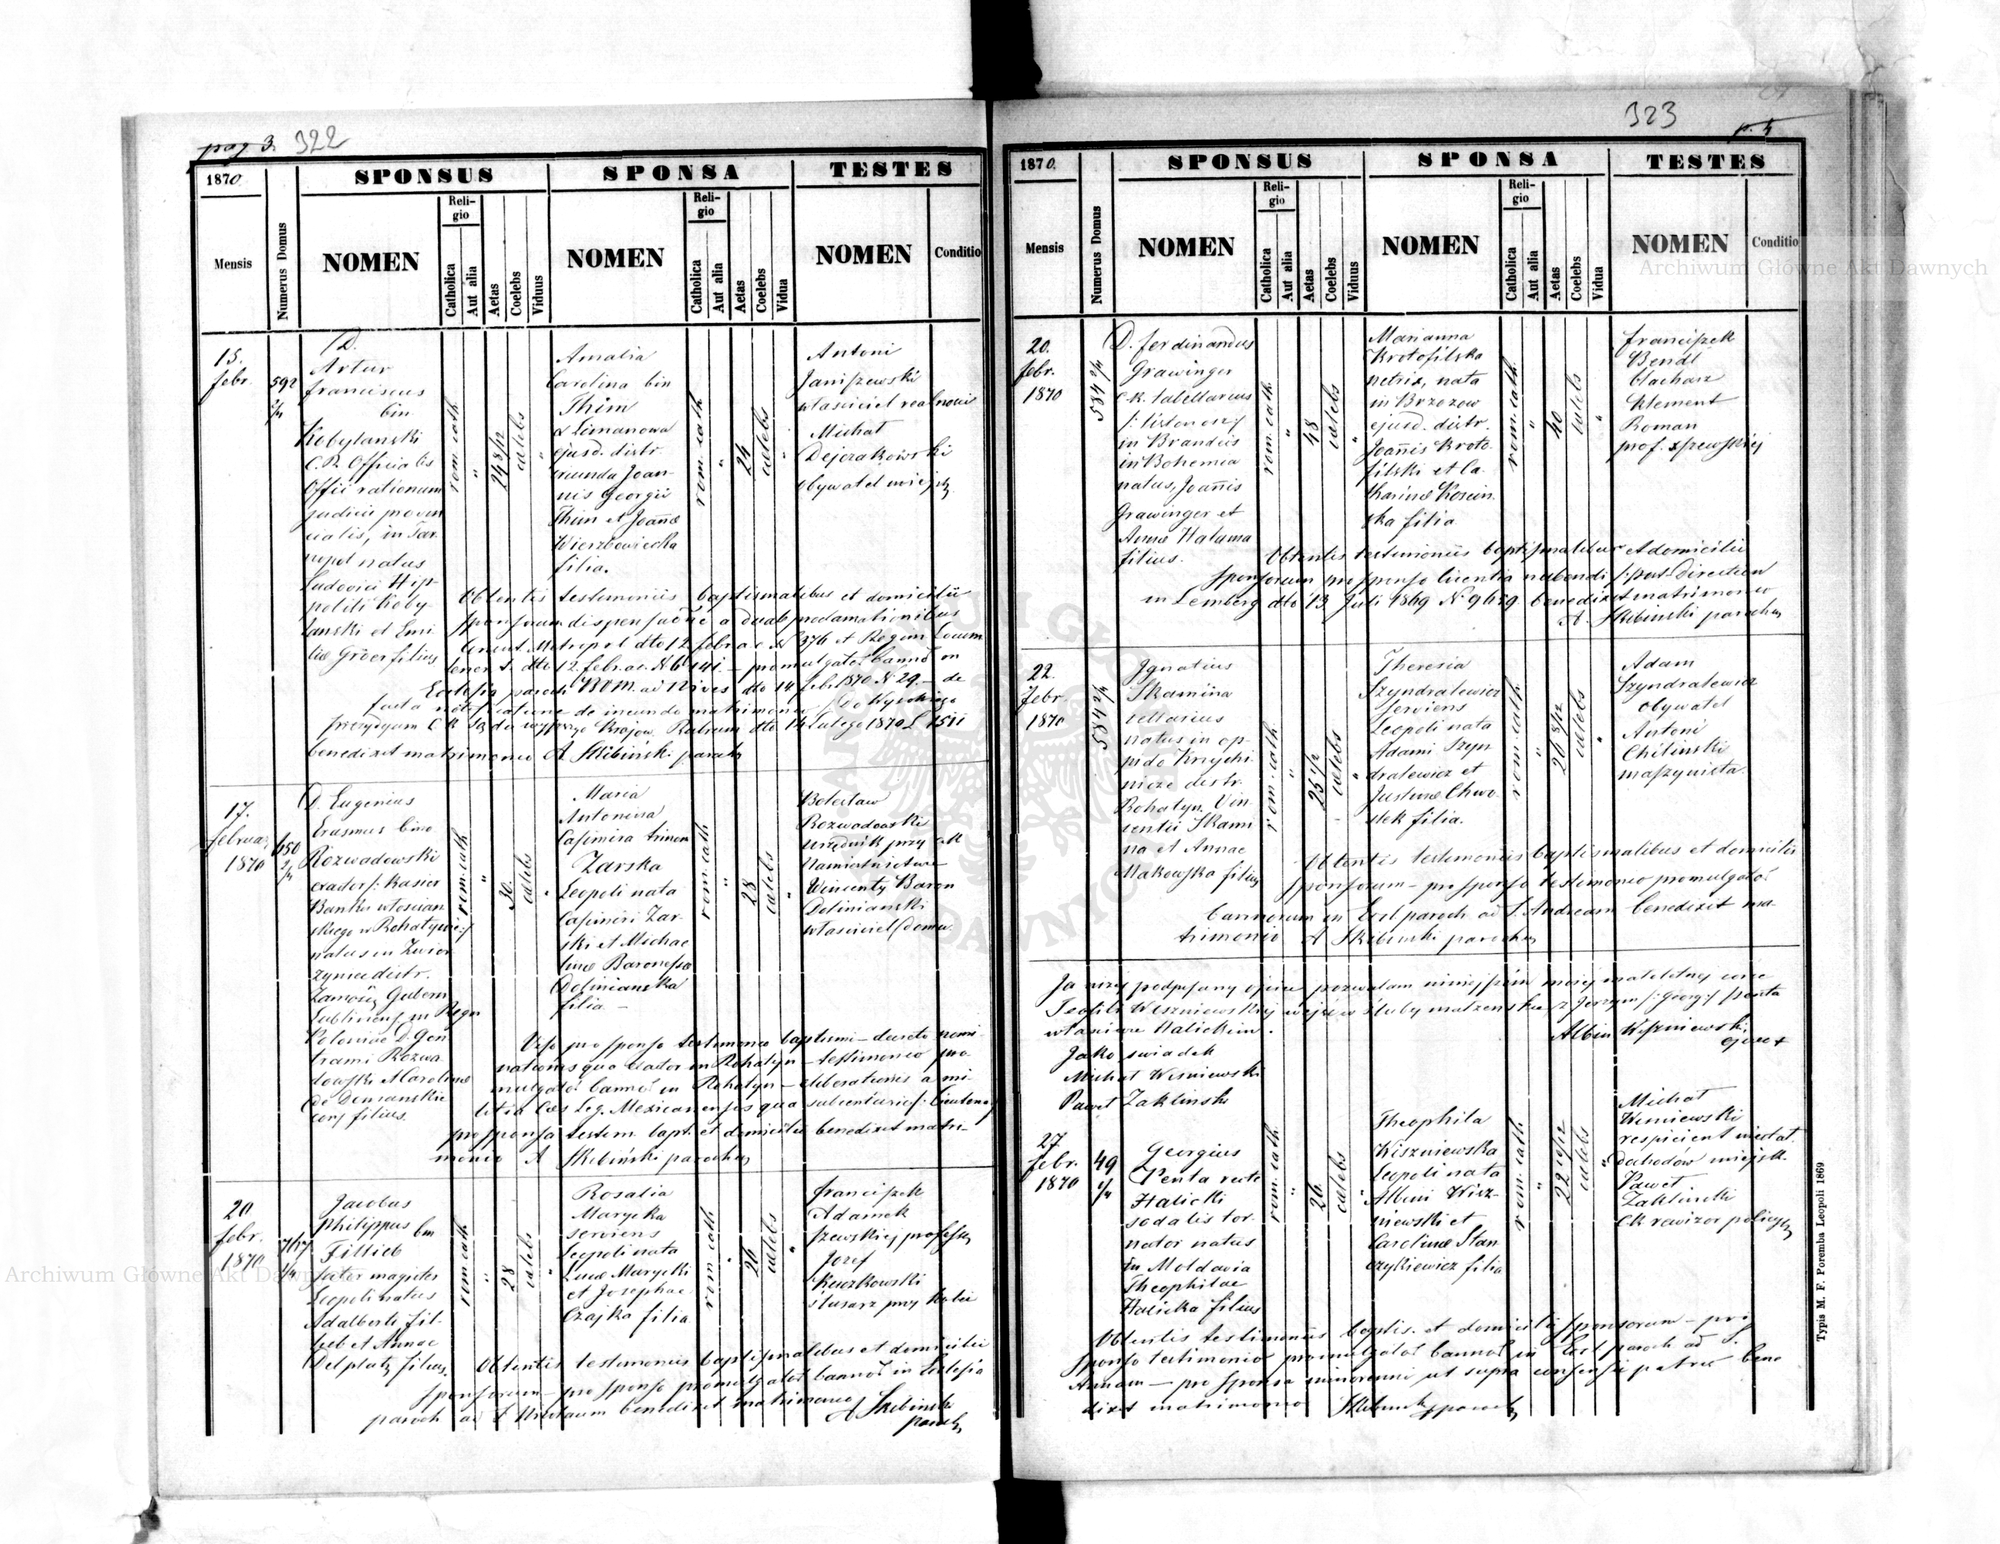 pag 3. 322
1870.
SPONSUS
SPONSA
TESTES
Mensis
Numerus Domus
NOMEN
Religio
Catholica
Aut alia
Aetas
Coelebs
Viduus
NOMEN
Religio
Catholica
Aut alia
Aetas
Coelebs
Vidua
NOMEN
Conditio
15.
febr.
592
2/4
D.
Artur
franciscus
bin
Kobylanski
C.R. Officialis
Offii rationum
judicii provin
cialis, in Tar
nopol natus
Ludovici Hip
politi Koby
lanski et Emi
liae Gröer filius
rom. cath
"
24 8/12
caelebs
"
Amalia
Carolina bin
Thim
Limanowa
ejusd. distr.
oriunda Joan
nis Georgii
Thim et Joannae
Wierzbowiecka
filia.
rom. cath
"
24
caelebs
"
Antoni
Janiszewski
właściciel realności
Michał
Dejczakowski
obywatel miejski
Obtentis testimoniis baptismalibus et domicilii
sponsorum dispensatione a duab. proclamationibus
Consist. Metropol dto 12 febr a.c. N 376 et Regim Locum
tenen. S. dto 12. febr. a.c. N 6141 – promulgatis bannis in
Ecclesia paroch. B.V.M. ad Nives dto 14 febr 1870 N 29. – de
facta notificatione de ineundo matrimonio Do Wysokiego
prezydyum C K Sądu wyższego Krajow. dto 14 Lutego 1870 L 1511
benedixit matrimonio A Skibiński paroch
17.
februar
1870
650
2/4
D. Eugenius
Erasmus bino
Rozwadowski
Kasier
Banku włościan
skiego w Rohatynie
natus in Zwier
zyniec distr.
Zamość Gubern
Lublinens in Regn
Poloniae D. Gon
trami Rozwa
dowski et Carolinae
de Domanskie
conj filius.
rom. cath
"
30.
caelebs
"
Maria
Antonina
Casimira trinom
Zarska
Leopoli nata
Casimiri Zar
ski et Michae
linae Baronessae
Dolinianska
filia –
rom. cath
"
28
caelebs
"
Bolesław
Rozwadowski
urzędnik przy c k
Namiestnictwie
Wincenty Baron
Dolinianski
właściciel domu.
Viso pro sponso testimonio baptismi – decreto nomi
nationis qua in Rohatyn – testimonio pro
mulgatis bannis in Rohatyn – liberationis a mi
litia Caes Leg. Mexicanensis qua
pro sponsa testim. bapt. et domicilii benedixit matri-
monio A Skibiński paroch
20
febr.
1870
767
1/4
Jacobus
Philippus bin
Filtieb
magister
Leopoli natus
Adalberti Fil-
tieb et Annae
Delplatz filius.
rom. cath
"
28
caelebs
"
Rosalia
Marycka
serviens
Leopoli nata
Lucae Marycki
et Josephae
Czajka filia
rom. cath
"
26
caelebs
"
franciszek
Adamek
szewskiej professy
Jozef
Kuczkowski
ślusarz przy kolei
Obtentis testimoniis baptismalibus et domicilii
sponsorum – pro sponso promulgatis bannis in Ecclesia
paroch ad S Nicolaum benedixit matrimonio
A Skibinski
paroch
323
p. 4
1870.
SPONSUS
SPONSA
TESTES
Mensis
Numerus Domus
NOMEN
Religio
Catholica
Aut alia
Aetas
Coelebs
Viduus
NOMEN
Religio
Catholica
Aut alia
Aetas
Coelebs
Vidua
NOMEN
Conditio
20.
febr.
1870
584 2/4
D. ferdinandus
Grawinger
c.k. tabellarius
/: listonosz :/
in Brandeis
in Bohemia
natus, Joannis
Grawinger et
Annae Halama
filius.
rom. cath
"
48
caelebs
"
Marianna
Krotofilska
netrix, nata
in Brzozow
ejusd. distr.
Joannis Kroto-
filski et Ca
tharinae Koscin
ska filia
rom. cath.
"
40
caelebs
"
franciszek
Bendl
blacharz
Klement
Roman
prof. szewskiej
Obtentis testimoniis baptismalibus et domicilii
sponsorum pro sponso licentia nubendi /: post-direction
in Lemberg dto 13 Juli 1869 N 9659 benedixit matrimonio
A. Skibinski paroch
22.
febr
1870
584 2/4
Ignatius
Skamina
natus in op-
pido Knychi
nicze distr.
Rohatyn Vin-
centii Skami
na et Annae
Makowska filius
rom. cath
"
25 1/2
caelebs
"
Theresia
Szyndralewicz
serviens
Leopoli nata
Adami Szyn
dralewicz et
Justinae Chwo
stek filia.
rom. cath
"
26 8/12
caelebs
"
Adam
Szyndralewicz
obywatel
Antoni
Chilinski
maszynista.
Obtentis testimoniis baptismalibus et domicilii
sponsorum – pro sponso testimonio promulgatis
bannorum in Eccl paroch ad S. Andream benedixit ma-
trimonio A Skibinski paroch
Ja niżej podpisany ojciec pozwalam niniejszém mojej małoletniej córce
Teofili Wiszniewskiej wejść w śluby małżenskie z Jerzym /: Georg :/ Penta
właściwie Halickim.
Albin Wiszniewski
ojciec
Jako świadek
Michał Wisniewski
Paweł Zaklinski
27
febr.
1870
49
1/4
Georgius
Penta recte
Halicki
sodalis tor-
nator natus
in Moldavia
Theophilae
Halicka filius
rom. cath
"
26
caelebs
"
Theophila
Wiszniewska
Leopoli nata
Albini Wisz-
niewski et
Carolinae Stan
czykiewicz filia
rom. cath
"
22
caelebs
"
Michał
Wisniewski
respicient niestał.
dochodów miejsk.
Paweł
Zaklinski
ck rewizor policyi
Obtentis testimoniis baptis. et domicilii sponsorum – pro
sponso testimonio promulgatis bannis in Eccl paroch ad S.
Annam – pro sponsa minorenni ut supra consensu patris bene
dixit matrimonio Skibinski paroch
Typis M. F. Poremba Leopoli 1869
Archiwum Główne Akt Dawnych
Archiwum Główne Akt Dawnych
ARCHIWUM GŁÓWNE AKT DAWNYCH